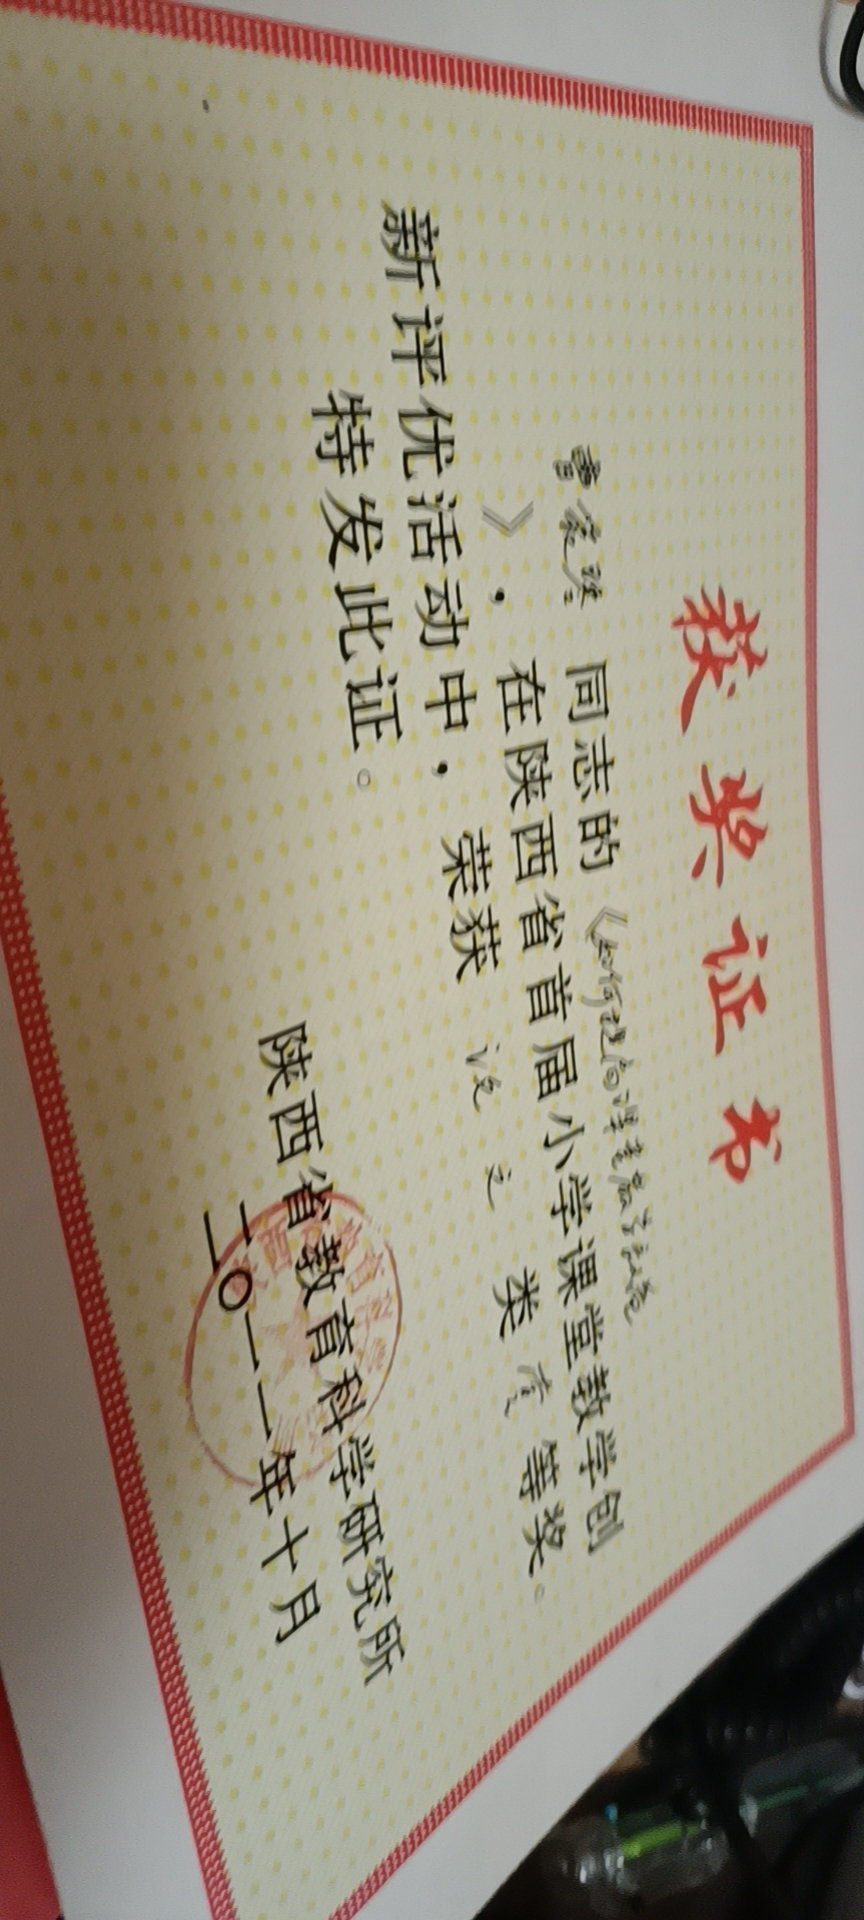 获奖证书
曹家瑛 同志的《如何提高课堂教学效率
》，在陕西省首届小学课堂教学创
新评优活动中，荣获 论文 类 壹 等奖。
特发此证。
陕西省教育科学研究所
二〇一一年十月